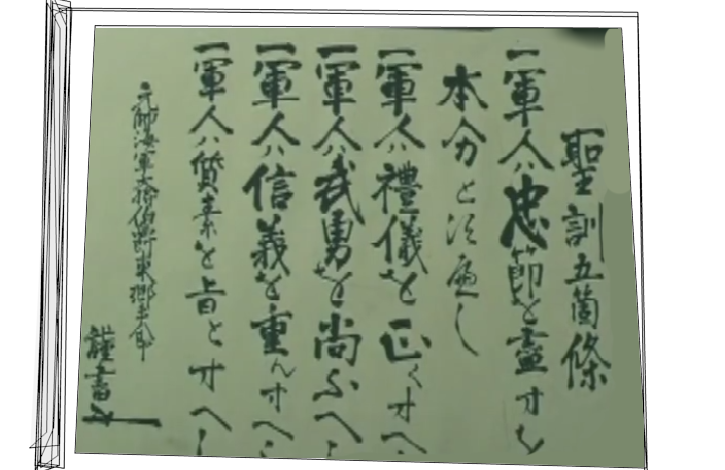 聖訓五箇條
一軍人ハ忠節を盡すを
本分とす遍し
一軍人ハ禮儀を正くすへし
一軍人ハ武勇を尚ふへし
一軍人ハ信義を重んすへし
一軍人ハ質素を旨とすへし
元帥海軍大將伯爵東郷平八郎
謹書